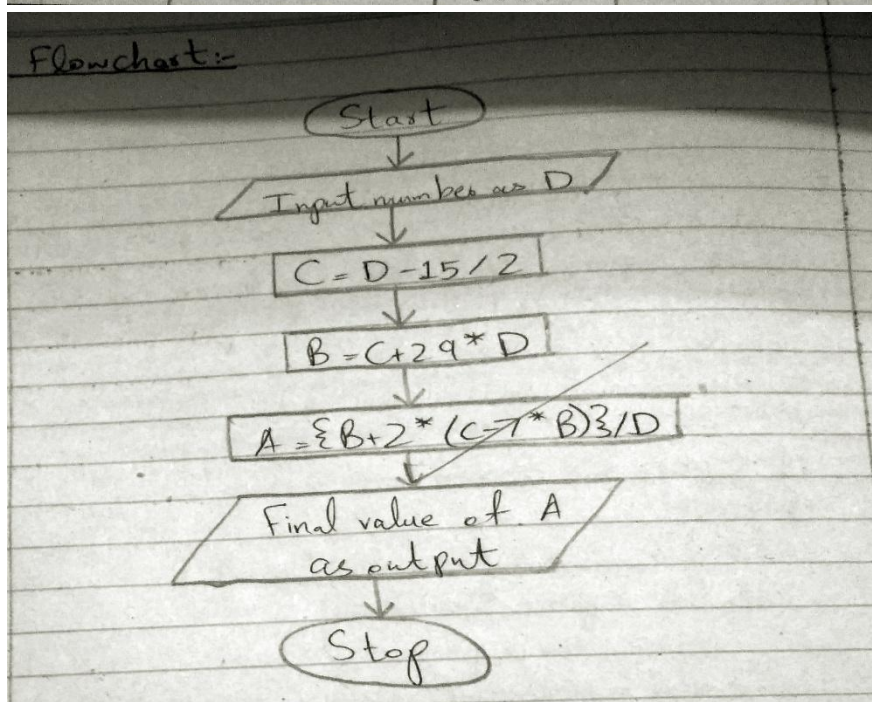 Flowchart:-
Start
Input number as D
C = D - 15 / 2
B = C + 29 * D
A = {B+2* (C-7* B)}/D
Final value of A
as output
Stop